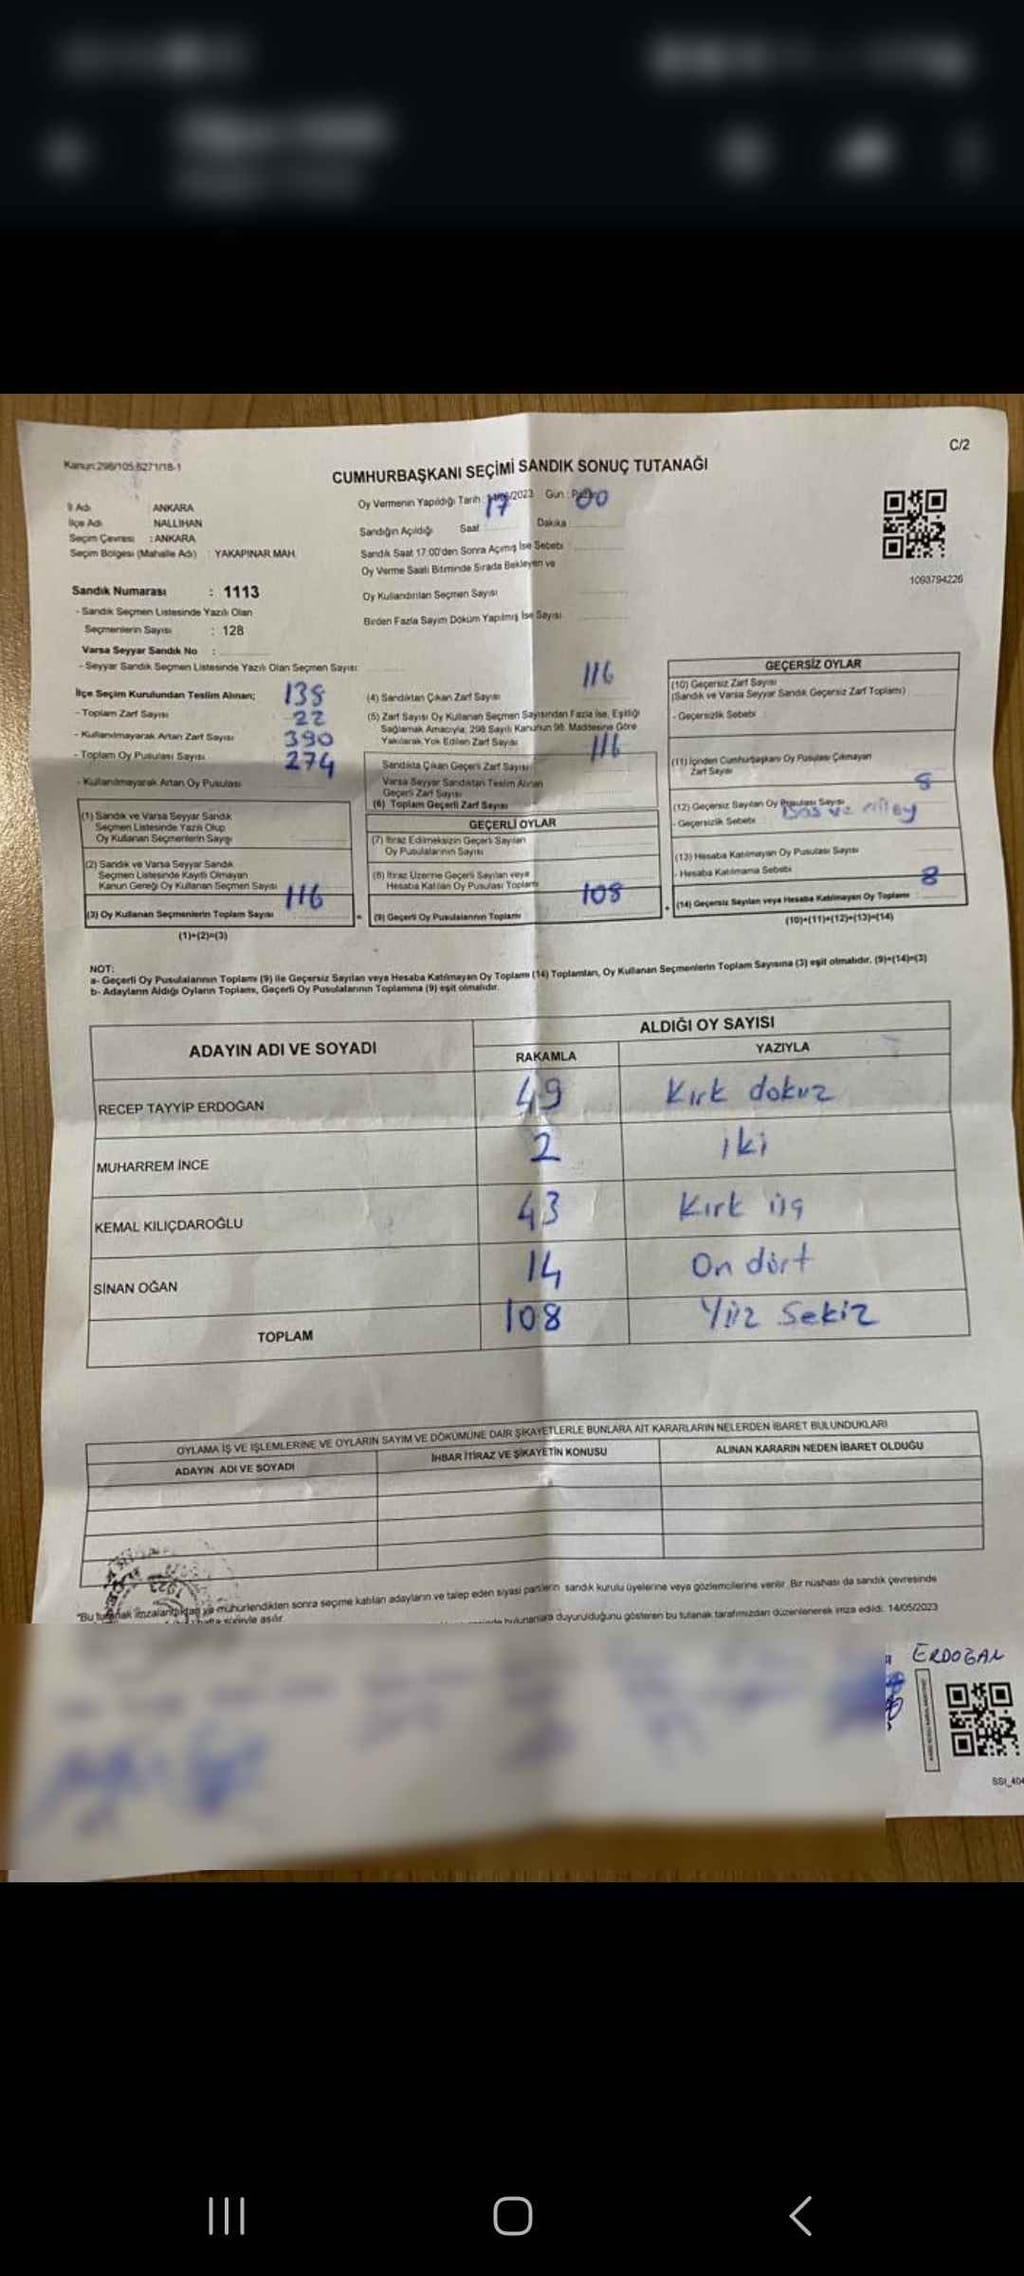 Kanun:298/105,6271/18-1
C/2
CUMHURBAŞKANI SEÇİMİ SANDIK SONUÇ TUTANAĞI
İl Adı ANKARA
İlçe Adı NALLIHAN
Seçim Çevresi : ANKARA
Seçim Bölgesi (Mahalle Adı) : YAKAPINAR MAH.
Sandık Numarası : 1113
- Sandık Seçmen Listesinde Yazılı Olan
Seçmenlerin Sayısı : 128
Varsa Seyyar Sandık No :
- Seyyar Sandık Seçmen Listesinde Yazılı Olan Seçmen Sayısı:
Oy Vermenin Yapıldığı Tarih : /2023 Gün :
17 00
Sandığın Açıldığı Saat Dakika :
Sandık Saat 17:00'den Sonra Açımış İse Sebebi :
Oy Verme Saati Bitiminde Sırada Bekleyen ve
Oy Kullandırılan Seçmen Sayısı
Birden Fazla Sayım Döküm Yapılmış İse Sayısı
1093794226
İlçe Seçim Kurulundan Teslim Alınan;
138
- Toplam Zarf Sayısı
22
- Kullanılmayarak Artan Zarf Sayısı
390
- Toplam Oy Pusulası Sayısı
274
- Kullanılmayarak Artan Oy Pusulası
(1) Sandık ve Varsa Seyyar Sandık
Seçmen Listesinde Yazılı Olup
Oy Kullanan Seçmenlerin Sayısı
(2) Sandık ve Varsa Seyyar Sandık
Seçmen Listesinde Kayıtlı Olmayan
Kanun Gereği Oy Kullanan Seçmen Sayısı
116
(3) Oy Kullanan Seçmenlerin Toplam Sayısı
(1)+(2)=(3)
116
(4) Sandıktan Çıkan Zarf Sayısı
(5) Zarf Sayısı Oy Kullanan Seçmen Sayısından Fazla İse, Eşitliği
Sağlamak Amacıyla, 298 Sayılı Kanunun 98. Maddesine Göre
Yakılarak Yok Edilen Zarf Sayısı
116
Sandıkta Çıkan Geçerli Zarf Sayısı
Varsa Seyyar Sandıktan Teslim Alınan
Geçerli Zarf Sayısı
(6) Toplam Geçerli Zarf Sayısı
GEÇERLİ OYLAR
(7) İtiraz Edilmeksizin Geçerli Sayılan
Oy Pusulalarının Sayısı
(8) İtiraz Üzerine Geçerli Sayılan veya
Hesaba Katılan Oy Pusulası Toplamı
108
(9) Geçerli Oy Pusulalarının Toplamı
GEÇERSİZ OYLAR
(10) Geçersiz Zarf Sayısı
(Sandık ve Varsa Seyyar Sandık Geçersiz Zarf Toplamı)
- Geçersizlik Sebebi
(11) İçinden Cumhurbaşkanı Oy Pusulası Çıkmayan
Zarf Sayısı
8
(12) Geçersiz Sayılan Oy Pusulası Sayısı
- Geçersizlik Sebebi ve
(13) Hesaba Katılmayan Oy Pusulası Sayısı
- Hesaba Katılmama Sebebi
8
(14) Geçersiz Sayılan veya Hesaba Katılmayan Oy Toplamı
(10)+(11)+(12)+(13)=(14)
NOT:
a- Geçerli Oy Pusulalarının Toplamı (9) ile Geçersiz Sayılan veya Hesaba Katılmayan Oy Toplamı (14) Toplamları, Oy Kullanan Seçmenlerin Toplam Sayısına (3) eşit olmalıdır. (9)+(14)=(3)
b- Adayların Aldığı Oyların Toplamı, Geçerli Oy Pusulalarının Toplamına (9) eşit olmalıdır.
ADAYIN ADI VE SOYADI ALDIĞI OY SAYISI
RAKAMLA YAZIYLA
RECEP TAYYİP ERDOĞAN 49 Kırk dokuz
MUHARREM İNCE 2 iki
KEMAL KILIÇDAROĞLU 43 Kırk üç
SİNAN OĞAN 14 On dört
TOPLAM 108 Yüz Sekiz
OYLAMA İŞ VE İŞLEMLERİNE VE OYLARIN SAYIM VE DÖKÜMÜNE DAİR ŞİKAYETLERLE BUNLARA AİT KARARLARIN NELERDEN İBARET BULUNDUKLARI
ADAYIN ADI VE SOYADI İHBAR İTİRAZ VE ŞİKAYETİN KONUSU ALINAN KARARIN NEDEN İBARET OLDUĞU
"Bu tutanak imzalandıktan ve mühürlendikten sonra seçime katılan adayların ve talep eden siyasi partilerin sandık kurulu üyelerine veya gözlemcilerine verilir. Bir nüshası da sandık çevresinde
süreyle asılır. bulunanlara duyurulduğunu gösteren bu tutanak tarafımızdan düzenlenerek imza edildi. 14/05/2023
ERDOĞAN